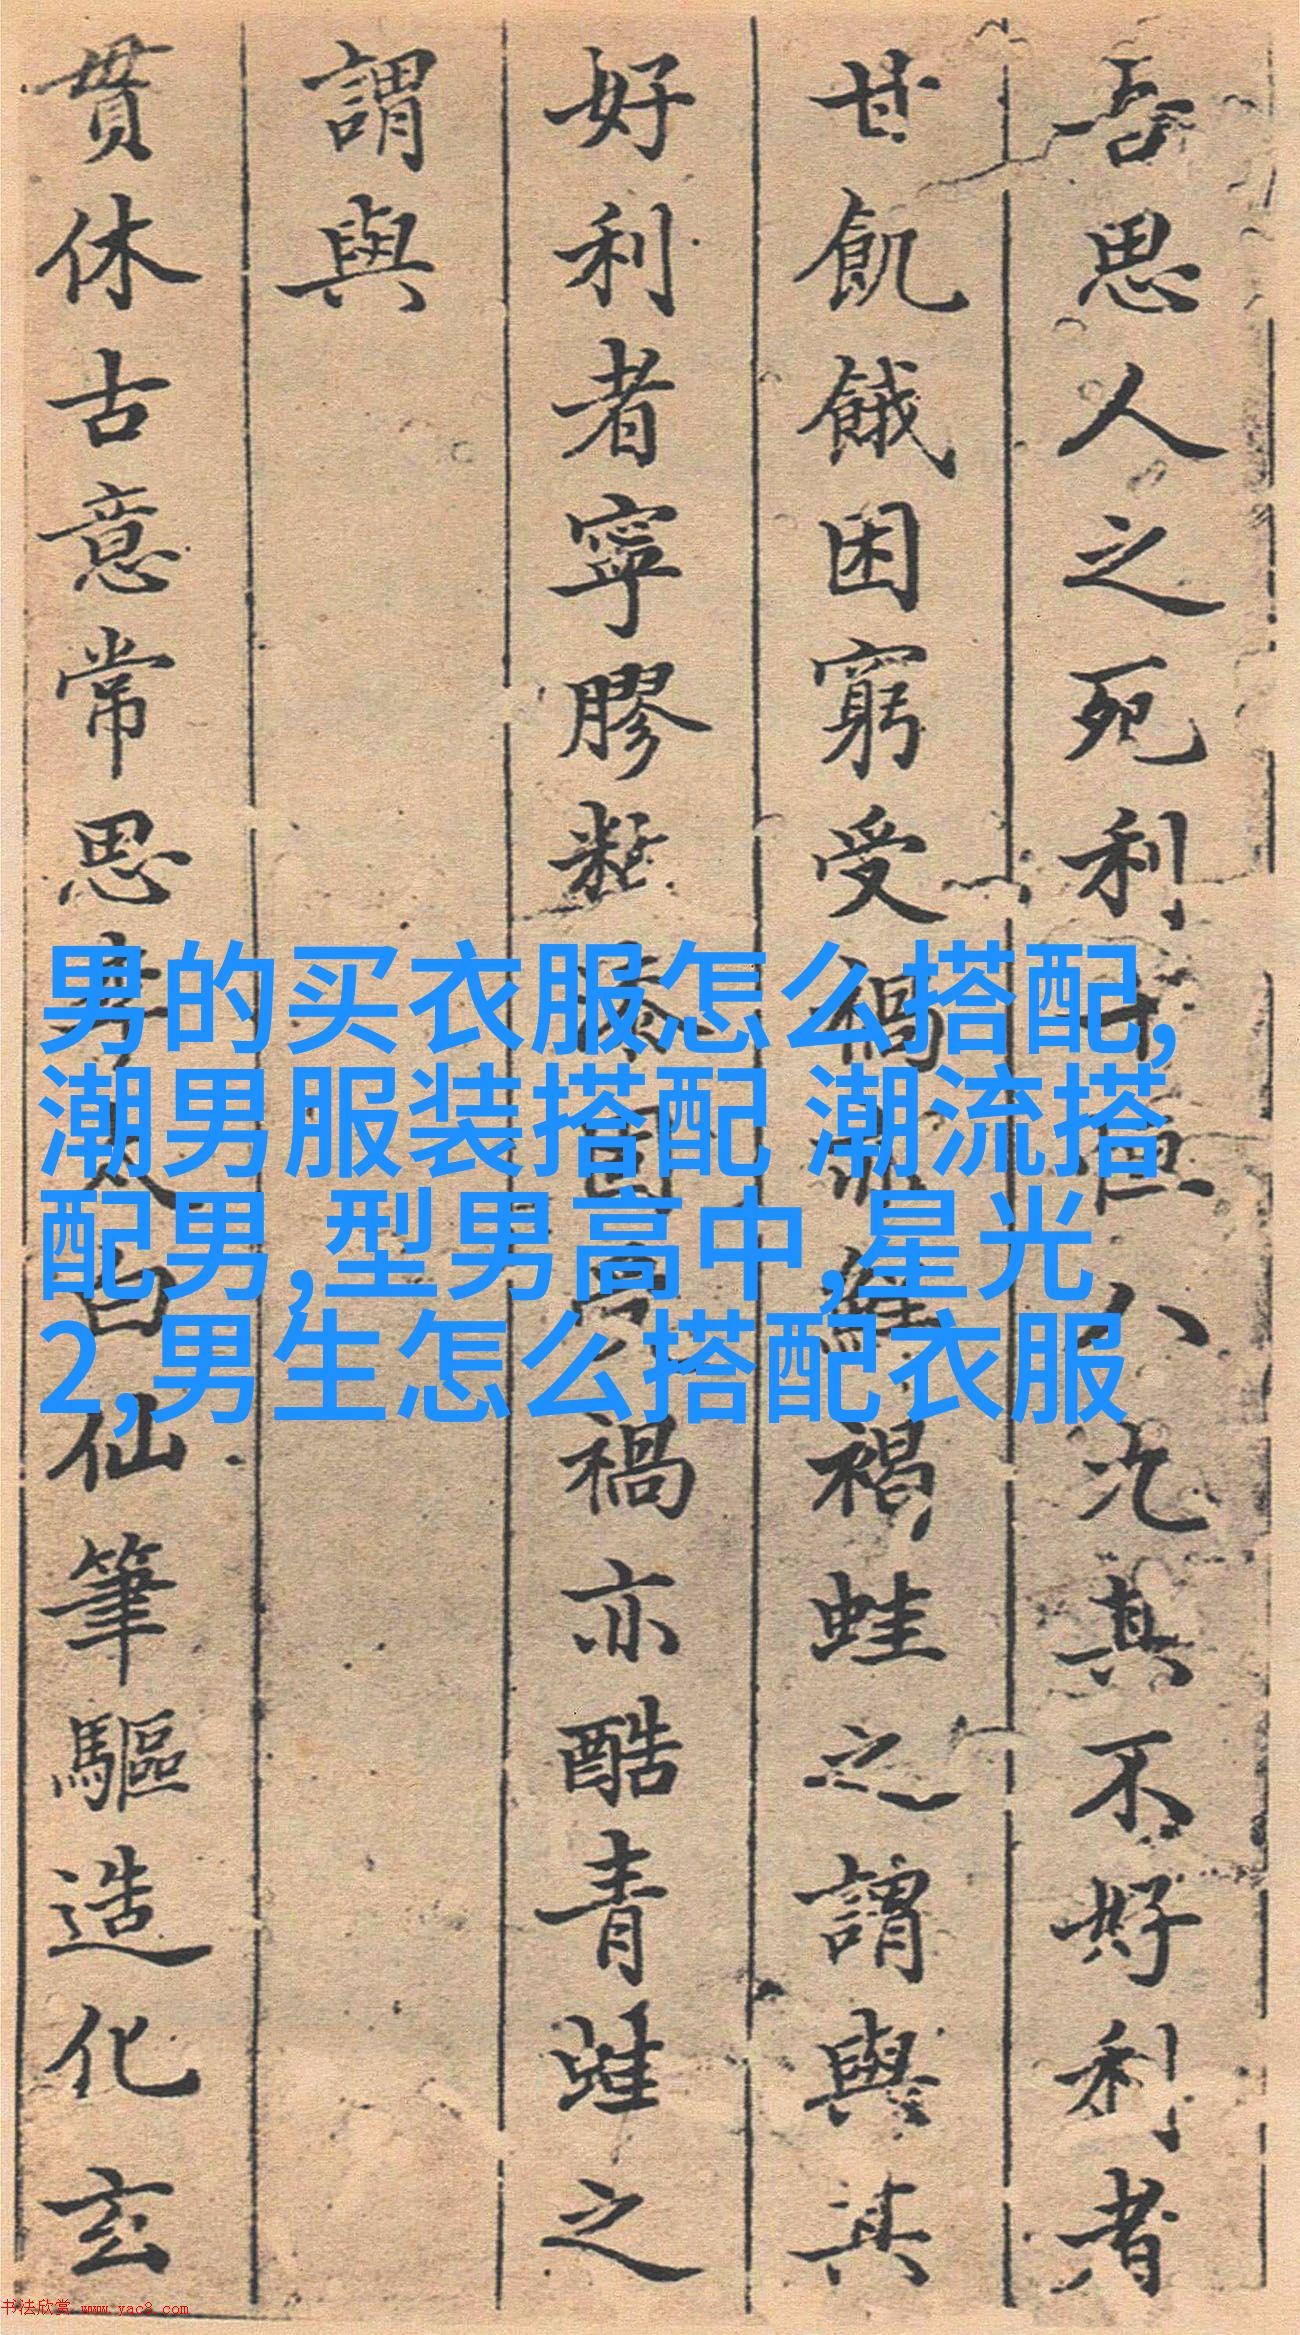 吾思人之死利十恒八九其不好利者
甘飢餓困窮受禍亦褐蛙之謂與其
好利者寧膠固禍亦酷青蛙之
謂與
貫休古意常思李太白仙筆驅造化玄
男的买衣服怎么搭配,
潮男服装搭配 潮流搭
配男,型男高中,星光
2,男生怎么搭配衣服
书法欣赏 www.yac8.com